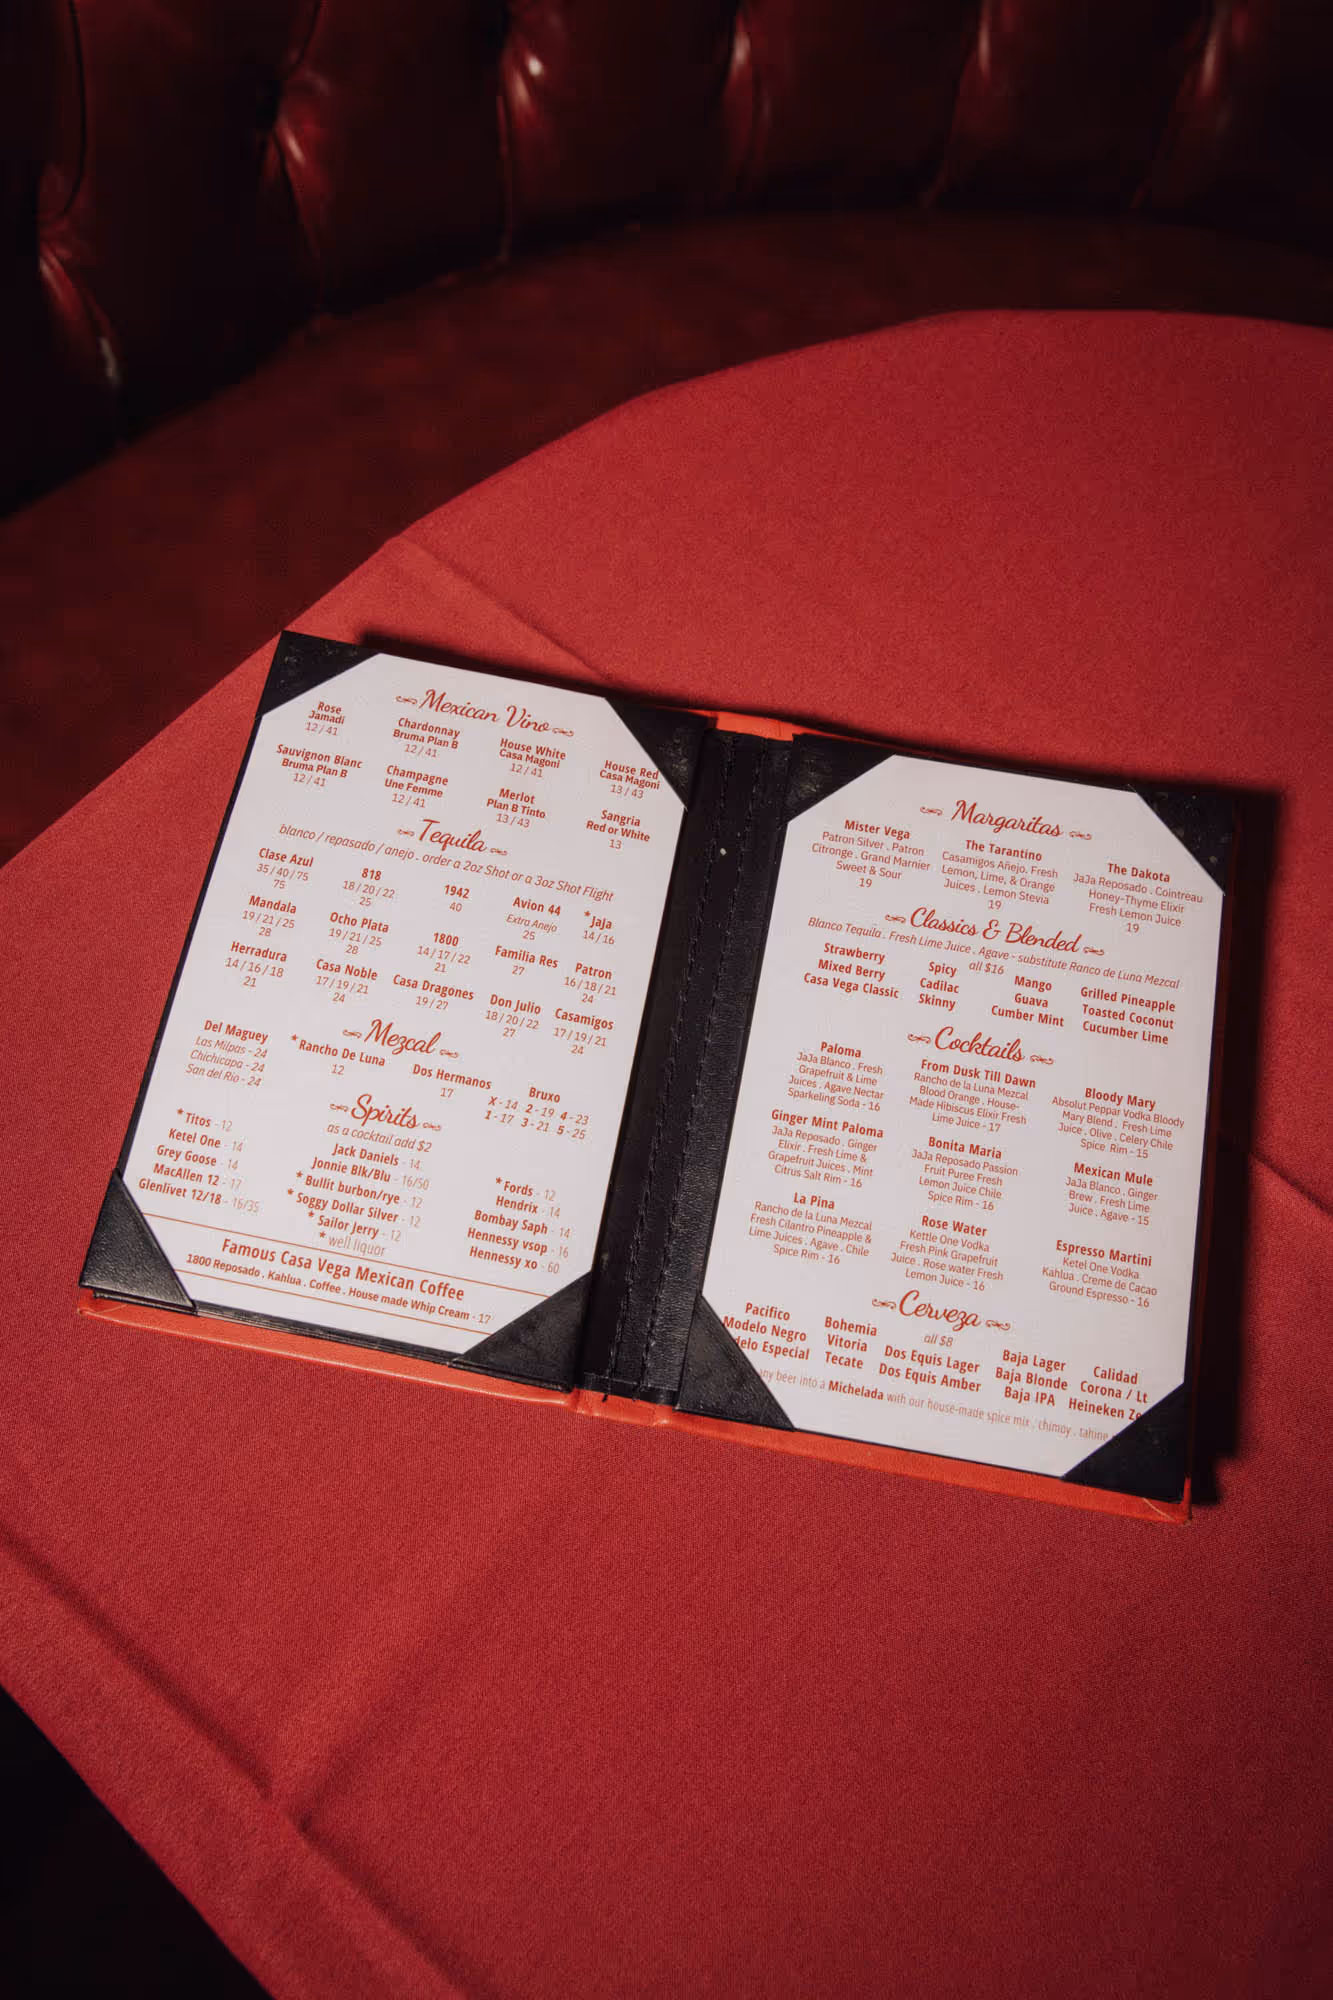 Mexican Vino
Rose
Jamadi
12 / 41
Chardonnay
Bruma Plan B
12 / 41
House White
Casa Magoni
12 / 41
House Red
Casa Magoni
13 / 43
Sauvignon Blanc
Bruma Plan B
12 / 41
Champagne
Une Femme
12 / 41
Merlot
Plan B Tinto
13 / 43
Sangria
Red or White
13
Tequila
blanco / repasado / anejo . order a 2oz Shot or a 3oz Shot Flight
Clase Azul
35 / 40 / 75
75
818
18 / 20 / 22
25
1942
40
Avion 44
Extra Anejo
25
*Jaja
14 / 16
Mandala
19 / 21 / 25
28
Ocho Plata
19 / 21 / 25
28
1800
14 / 17 / 22
21
Familia Res
27
Patron
16 / 18 / 21
24
Herradura
14 / 16 / 18
21
Casa Noble
17 / 19 / 21
24
Casa Dragones
19 / 27
Don Julio
18 / 20 / 22
27
Casamigos
17 / 19 / 21
24
Mezcal
Del Maguey
Las Milpas - 24
Chichicapa - 24
San del Rio - 24
*Rancho De Luna
12
Dos Hermanos
17
Bruxo
X - 14 2 - 19 4 - 23
1 - 17 3 - 21 5 - 25
Spirits
as a cocktail add $2
*Titos - 12
Ketel One - 14
Grey Goose - 14
MacAllen 12 - 17
Glenlivet 12/18 - 16/35
Jack Daniels - 14
Jonnie Blk/Blu - 16/50
* Bullit burbon/rye - 12
* Soggy Dollar Silver - 12
* Sailor Jerry - 12
* well liquor
* Fords - 12
Hendrix - 14
Bombay Saph - 14
Hennessy vsop - 16
Hennessy xo - 60
Famous Casa Vega Mexican Coffee
1800 Reposado . Kahlua . Coffee . House made Whip Cream - 17
Margaritas
Mister Vega
Patron Silver . Patron
Citronge . Grand Marnier
Sweet & Sour
19
The Tarantino
Casamigos Añejo. Fresh
Lemon, Lime, & Orange
Juices . Lemon Stevia
19
The Dakota
JaJa Reposado . Cointreau
Honey-Thyme Elixir
Fresh Lemon Juice
19
Classics & Blended
Blanco Tequila . Fresh Lime Juice . Agave - substitute Ranco de Luna Mezcal
all $16
Strawberry
Mixed Berry
Casa Vega Classic
Spicy
Cadilac
Skinny
Mango
Guava
Cumber Mint
Grilled Pineapple
Toasted Coconut
Cucumber Lime
Cocktails
Paloma
JaJa Blanco . Fresh
Grapefruit & Lime
Juices . Agave Nectar
Sparkeling Soda - 16
From Dusk Till Dawn
Rancho de la Luna Mezcal
Blood Orange . House-
Made Hibiscus Elixir Fresh
Lime Juice - 17
Bloody Mary
Absolut Peppar Vodka Bloody
Mary Blend . Fresh Lime
Juice . Olive . Celery Chile
Spice Rim - 15
Ginger Mint Paloma
JaJa Reposado . Ginger
Elixir . Fresh Lime &
Grapefruit Juices . Mint
Citrus Salt Rim - 16
Bonita Maria
JaJa Reposado Passion
Fruit Puree Fresh
Lemon Juice Chile
Spice Rim - 16
Mexican Mule
JaJa Blanco . Ginger
Brew . Fresh Lime
Juice . Agave - 15
La Pina
Rancho de la Luna Mezcal
Fresh Cilantro Pineapple &
Lime Juices . Agave . Chile
Spice Rim - 16
Rose Water
Kettle One Vodka
Fresh Pink Grapefruit
Juice . Rose water Fresh
Lemon Juice - 16
Espresso Martini
Ketel One Vodka
Kahlua . Creme de Cacao
Ground Espresso - 16
Cerveza
all $8
Pacifico
Modelo Negro
delo Especial
Bohemia
Vitoria
Tecate
Dos Equis Lager
Dos Equis Amber
Baja Lager
Baja Blonde
Baja IPA
Calidad
Corona / Lt
Heineken Ze
any beer into a Michelada with our house-made spice mix . chimoy . tahine